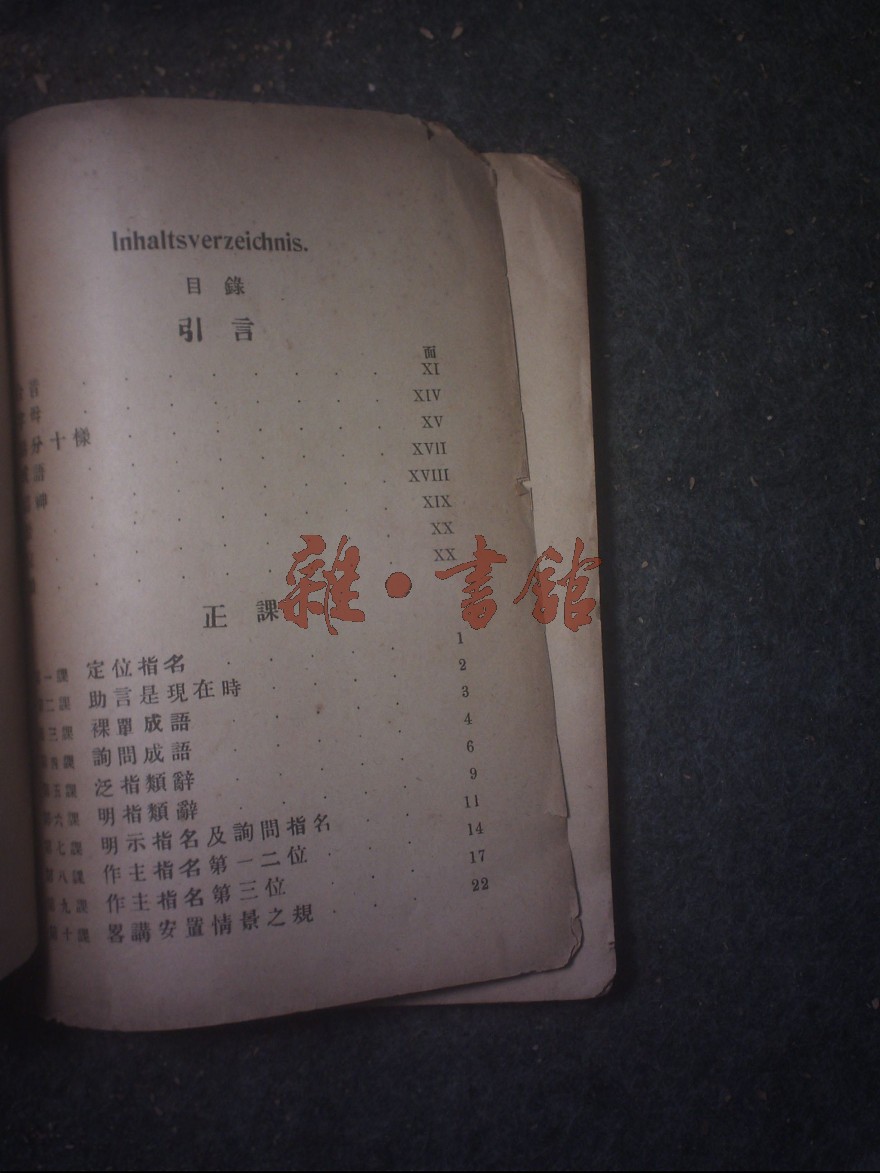 Inhaltsverzeichnis.
目錄
引言
面
XI
母 XIV
分十樣 XV
語 XVII
XVIII
XIX
XX
XX
雜·書館
正課
第一課 定位指名 1
第二課 助言是現在時 2
第三課 裸單成語 3
第四課 詢問成語 4
第五課 泛指類辭 6
第六課 明指類辭 9
第七課 明示指名及詢問指名 11
第八課 作主指名第一二位 14
第九課 作主指名第三位 17
第十課 畧講安置情景之規 22